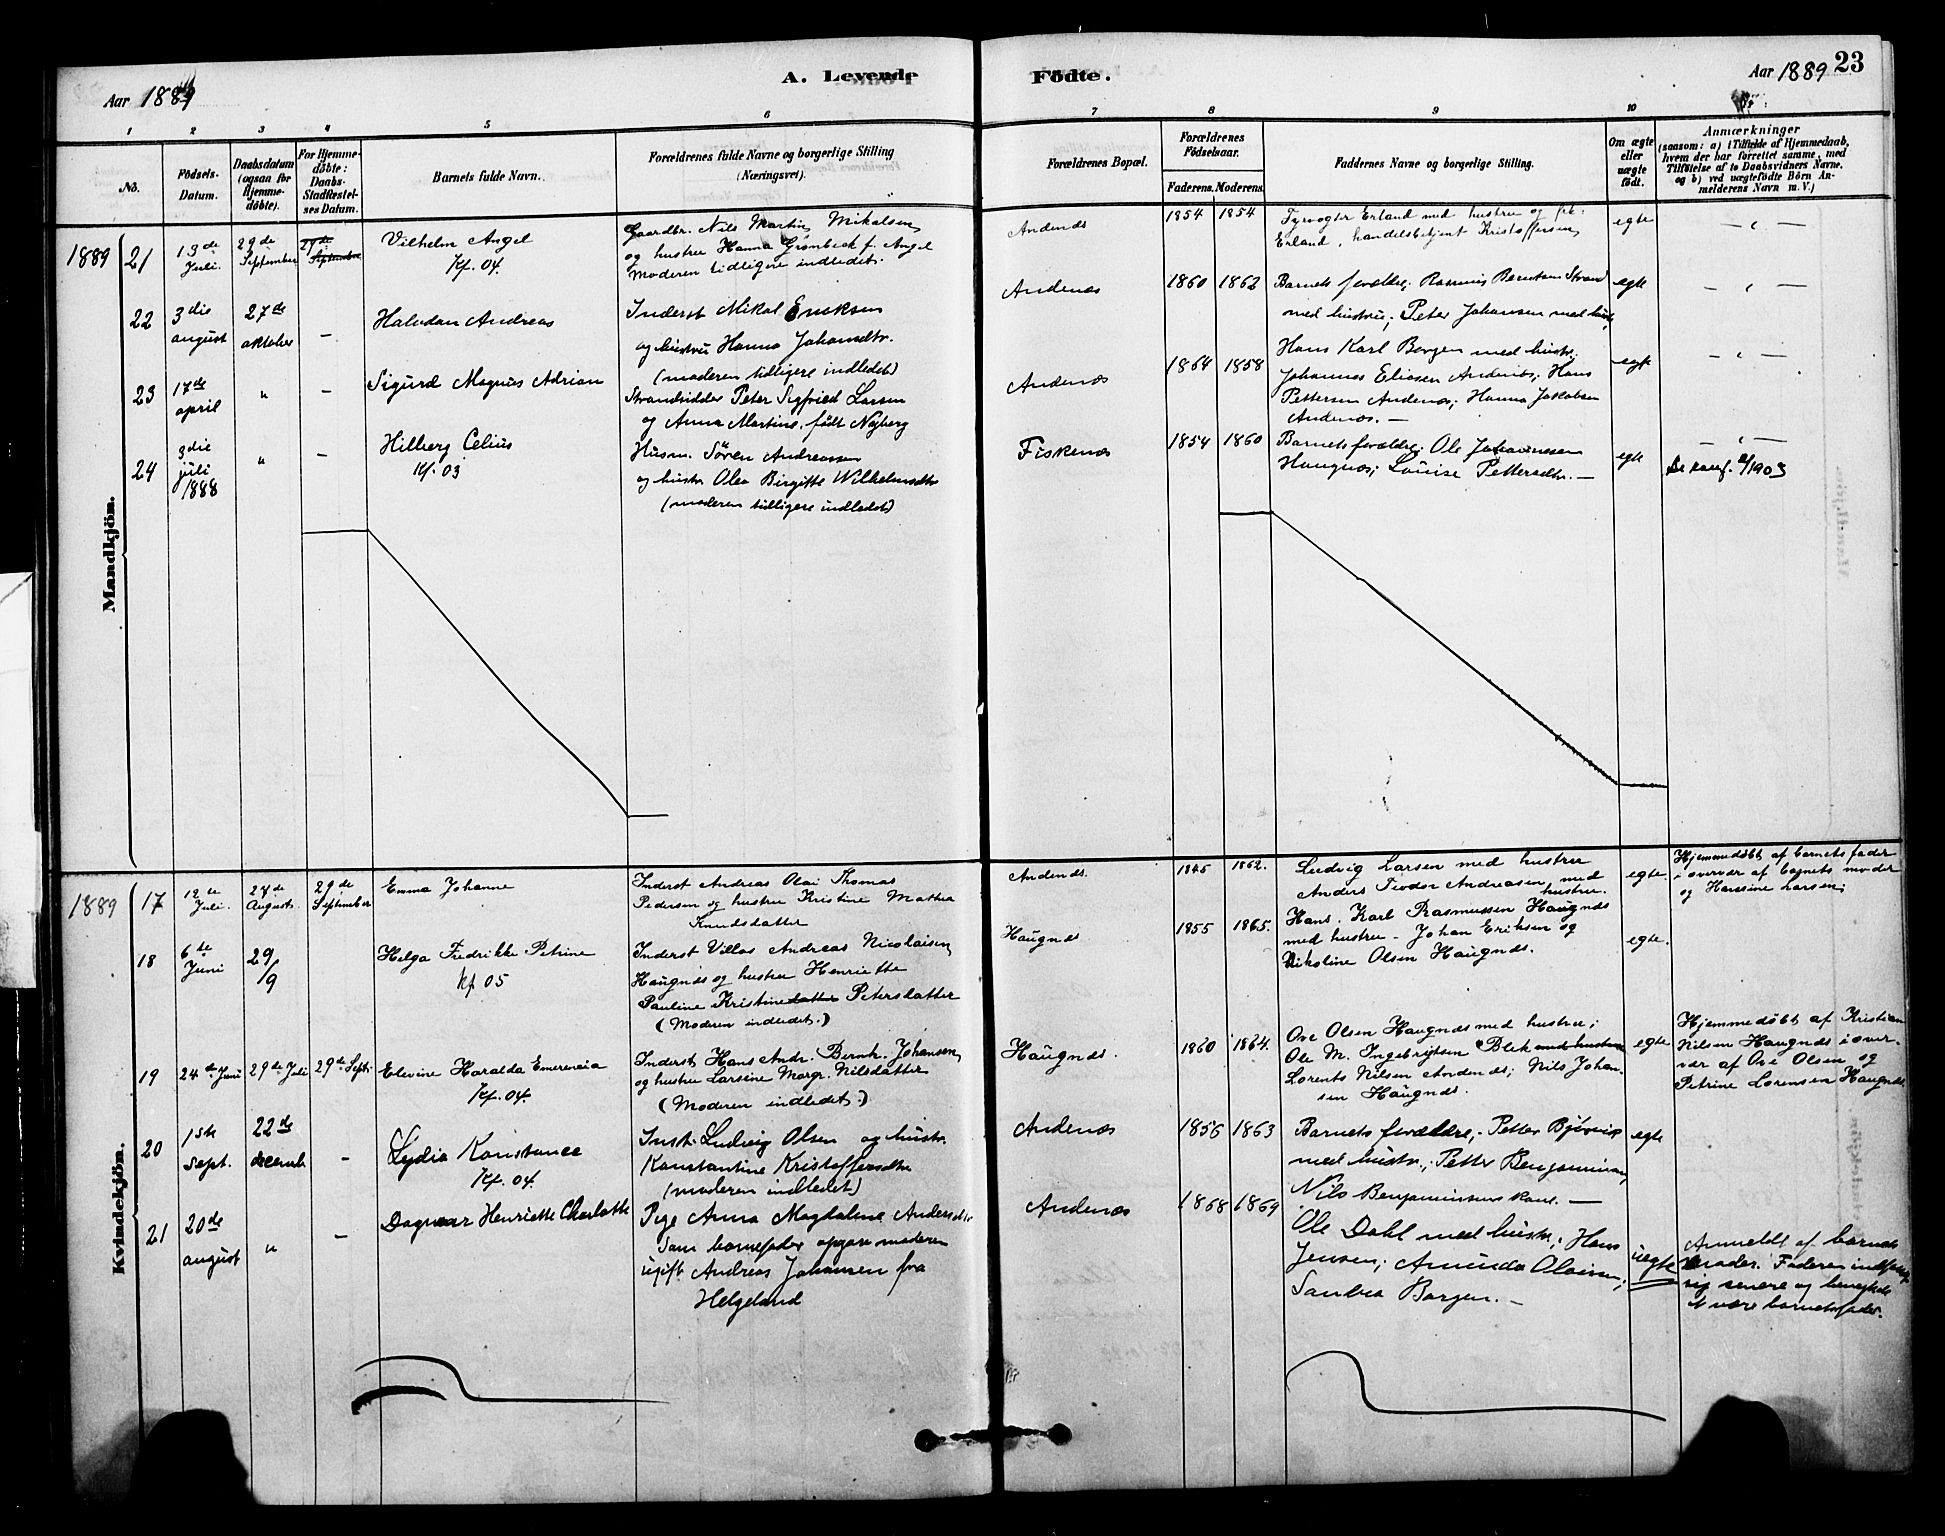 Aar 1889
A. Levende
Födte.
Aar 1889
23
1
2
3
4
5
6
7
8
9
10
No.
Födsels-
Datum.
Daabsdatum
(ogsaa for
Hjemme-
döbte).
For Hjemme-
döbte:
Daabs-
Stadfæstel-
ses Datum.
Barnets fulde Navn.
Forældrenes fulde Navne og borgerlige Stilling
(Næringsvei).
Forældrenes Bopæl.
Forældrenes
Födselsaar.
Faderens.
Moderens.
Faddernes Navne og borgerlige Stilling.
Om ægte
eller
uægte
födt.
Anmærkninger
(saasom: a) i Tilfælde af Hjemmedaab,
hvem der har forrettet samme, med
Tilföielse af to Daabsvidners Navne,
og b) ved uægtefödte Börn An-
melderens Navn m. V.)
Mandkjön.
1889
21
13de
Juli.
29de
September
29de
September
Vilhelm Angel
Kf. 04.
Gaardbr. Nils Martin Mikalsen
og hustru Hanna Grønbeck f. Angel
Moderen tidligere indledet.
Andenæs
1854
1854
Fyrvogter Erland med hustru og frk.
Erland, handelsbetjent Kristoffersen
egte
— " —
22
3die
august
27de
oktober
—
Halvdan Andreas
Inderst Mikal Eriksen
og hustru Hanna Johansdtr.
(moderen tidligere indledet)
Andenæs
1860
1862
Barnets forældre; Rasmus Berntsen Strand
med hustru; Peter Johansen med hustr.
egte
— " —
23
17de
april
"
—
Sigurd Magnus Adrian
Strandsidder Peter Sigfried Larsen
og Anna Martine, født Nyberg
Andenæs
1864
1858
Hans Karl Borgen med hustr.
Johannes Eliasen Andenæs; Hans
Pettersen Andenæs; Hanna Jakobsen
Andenæs. —
egte
— " —
24
3die
juli
1888
"
—
Hilberg Celius
Kf. 03
Husm. Sören Andreassen
og hustr. Olea Birgitte Wilhelmsdtr
(moderen tidligere indledet)
Fiskenes
1854
1860
Barnets forældre; Ole Johannesen
Haugnæs; Louise Pettersdtr. —
egte
— " —
Kvindekjön.
1889
17
12te
Juli.
27de
August.
29de
September
Emma Johanne
Inderst Andreas Olai Thomas
Pedersen og hustru Kristine Mathea
Knudsdatter
Andenæs.
1845
1862.
Ludvig Larsen med hustru
Anders Teodor Andreasen med
hustru.
egte
Hjemmedøbt af barnets fader
i overvær af barnets moder
og Hansine Larsen;
18
6te
Juni
29/9
Helga Fredrikke Petrine
kf 05
Inderst Villas Andreas Nicolaisen
Haugnæs og hustru Henriette
Pauline Kristinedatter Petersdatter
(Moderen indledet.)
Haugnæs
1855
1865.
Hans Karl Rasmussen Haugnæs
med hustru – Johan Eriksen og
Nikoline Olsen Haugnæs.
egte.
19
24de Juni
29de Juli
29de Sept.
Elevine Haralda Emerensia
Kf. 04.
Inderst Hans Andr. Bernh. Johansen
og hustru Larsine Margr. Nilsdatter
(Moderen indledet.)
Haugnæs.
1860
1864.
Ove Olsen Haugnæs med hustru;
Ole M. Ingebrigtsen Blek med hustru
Lorents Nilsen Andenæs; Nils Johan-
sen Haugnæs.
egte
Hjemmedøbt af Kristian
Nilsen Haugnæs i over-
vær af Ove Olsen og
Petrine Lorensen Haugnæs
20
1ste
Sept.
22de
decemb
—
Lydia Konstance
Kf. 04.
Inst. Ludvig Olsen og hustr.
Konstantine Kristoffersdtr
(moderen indledet)
Andenæs
1856
1863
Barnets forældre; Petter Bjövig
med hustr.; Petter Benjaminsen,
Nils Benjaminsens kone. —
egte
21
20de
august
"
—
Dagmar Henriette Charlotte
Pige Anna Magdalene Andersdtr
Som barnefader opgav moderen
ugift Andreas Johansen fra
Helgeland
Andenæs
1868
1869
Ole Dahl med hustr.; Hans
Jensen; Amunda Olaisen;
Sandra Borgen. —
uægte
Anmeldt af barnets
Moder. Faderen
sig senere og
at være barnets fader.